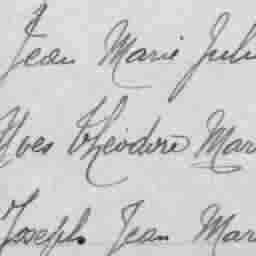 Jean Marie Juli
Yves Théodore Mar
Joseph Jean Mar